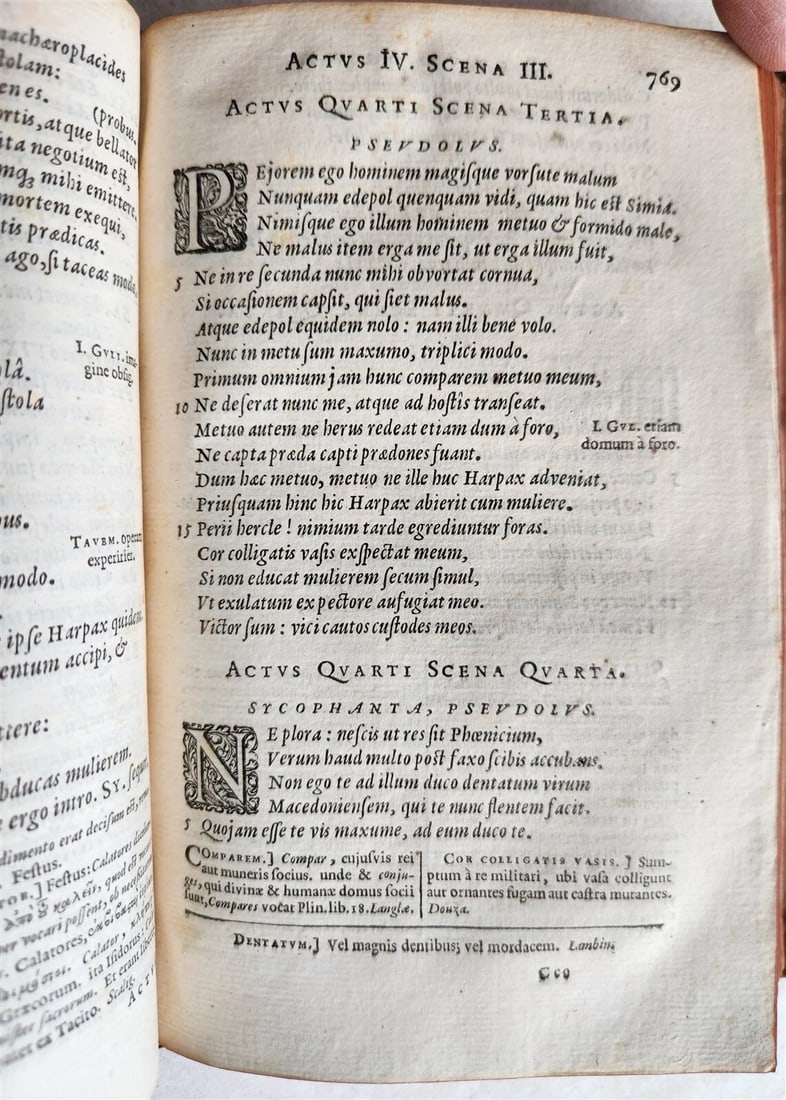 machæroplacides
tolam:
enes.
(probus.
rtis, atque bellator
ita negotium est,
mq; mihi emittere,
mortem exequi,
tis prædicas.
ago, si taceas modo.
I. GVLI.
gine obsig.
lâ.
stola
us.
TAVBM. operam
experirier.
modo.
ipse Harpax quidem
entum accipi, &
ttere:
bducas mulierem.
e ergo intro. SY. sequor.
Festus.
Festus: Calatores
Calatores,
Calator,
Græcorum. ita Isidorus,
sacrorum. Et erant
ex Tacito. Scalig.
ACTVS IV. SCENA III. 769
ACTVS QVARTI SCENA TERTIA.
PSEVDOLVS.
PEjorem ego hominem magisque vorsute malum
Nunquam edepol quenquam vidi, quam hic est Simia.
Nimisque ego illum hominem metuo & formido male,
Ne malus item erga me sit, ut erga illum fuit,
5 Ne in re secunda nunc mihi obvortat cornua,
Si occasionem capsit, qui siet malus.
Atque edepol equidem nolo: nam illi bene volo.
Nunc in metu sum maxumo, triplici modo.
Primum omnium jam hunc comparem metuo meum,
10 Ne deserat nunc me, atque ad hostîs transeat.
Metuo autem ne herus redeat etiam dum à foro,
I. GVL. etiam
domum à foro.
Ne capta præda capti prædones fuant.
Dum hæc metuo, metuo ne ille huc Harpax adveniat,
Priusquam hinc hic Harpax abierit cum muliere.
15 Perii hercle! nimium tarde egrediuntur foras.
Cor colligatis vasis exspectat meum,
Si non educat mulierem secum simul,
Vt exulatum ex pectore aufugiat meo.
Victor sum: vici cautos custodes meos.
ACTVS QVARTI SCENA QVARTA.
SYCOPHANTA, PSEVDOLVS.
NE plora: nescis ut res sit Phœnicium,
Verum haud multo post faxo scibis accubans.
Non ego te ad illum duco dentatum virum
Macedoniensem, qui te nunc flentem facit.
5 Quojam esse te vis maxume, ad eum duco te.
COMPAREM.] Compar, cujusvis rei
aut muneris socius. unde & conju-
ges, qui divinæ & humanæ domus socii
sunt, Compares vocat Plin. lib. 18. Langlæ.
COR COLLIGATIS VASIS.] Sum-
ptum à re militari, ubi vasa colligunt
aut ornantes fugam aut castra mutantes.
Douza.
DENTATVM.] Vel magnis dentibus; vel mordacem. Lambin.
Ccc